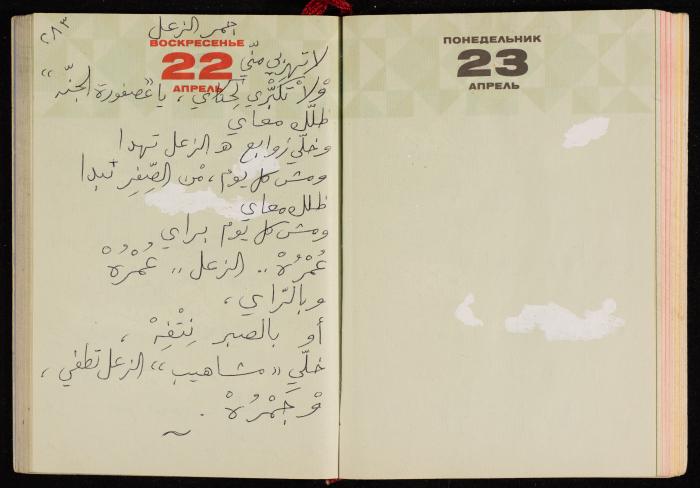 ٢٨٣
جمر الزعل
ВОСКРЕСЕНЬЕ
22
АПРЕЛЬ
لا تهربي منّي
وْلاْ تكَبّري لِحْكَاي، يا "عصفورة الجنّه"
ظلّك معاي
وخلّي زوابع هـ الزعل تهدا
ومش كل يوْم، مْن الصِّفِر نبدا
ظلك معاي
ومش كل يوْم براي
عُمْرُهْ .. الزعل ,, عُمْرُهْ
وبالرّاي،
أو بالصبر نِتْفِهْ،
خلّي "مشاهيب" الزعل تطفي،
وْ جَمْرُهْ .
ПОНЕДЕЛЬНИК
23
АПРЕЛЬ